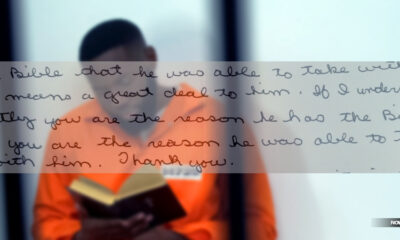 Bible that he was able to take with
means a great deal to him. If I under
tly you are the reason he has the Bi
you are the reason he was able to t
with him. Thank you.
NOW